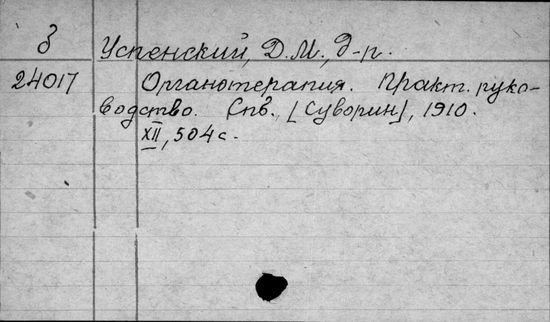 З Успенский, Д.М., д-р.
24017 Органотерапия. Практ. руко-
водство. Спб., [Суворин], 1910.
XII, 504 с.